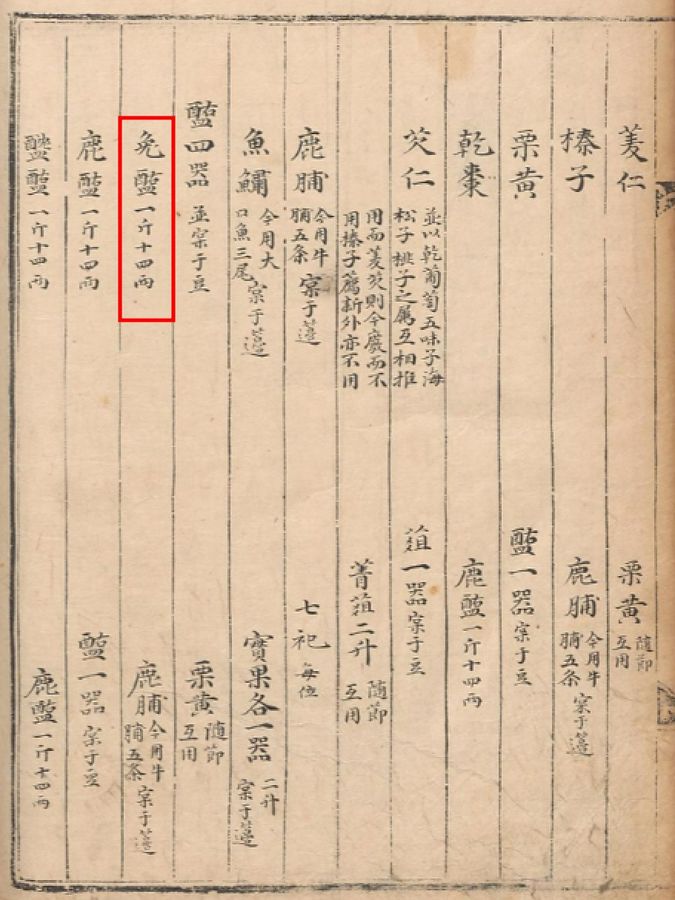 菱仁
榛子
栗黃
乾棗
芡仁 並以乾葡萄五味子海
松子桃子之属互相推
用而菱芡則今廢而不
用榛子薦新外亦不用
鹿脯 今用牛
脯五条 宲于籩
魚鱐 今用大
口魚三尾 宲于籩
醢四器 並宲于豆
兔醢一斤十四兩
鹿醢一斤十四兩
醓醢一斤十四兩
栗黃 隨節
互用
鹿脯 今用牛
脯五条 宲于籩
醢一器 宲于豆
鹿醢一斤十四兩
菹一器 宲于豆
菁菹二升 隨節
互用
七祀 每位
實果各一器 二升
宲于籩
栗黃 隨節
互用
鹿脯 今用牛
脯五条 宲于籩
醢一器 宲于豆
鹿醢一斤十四兩